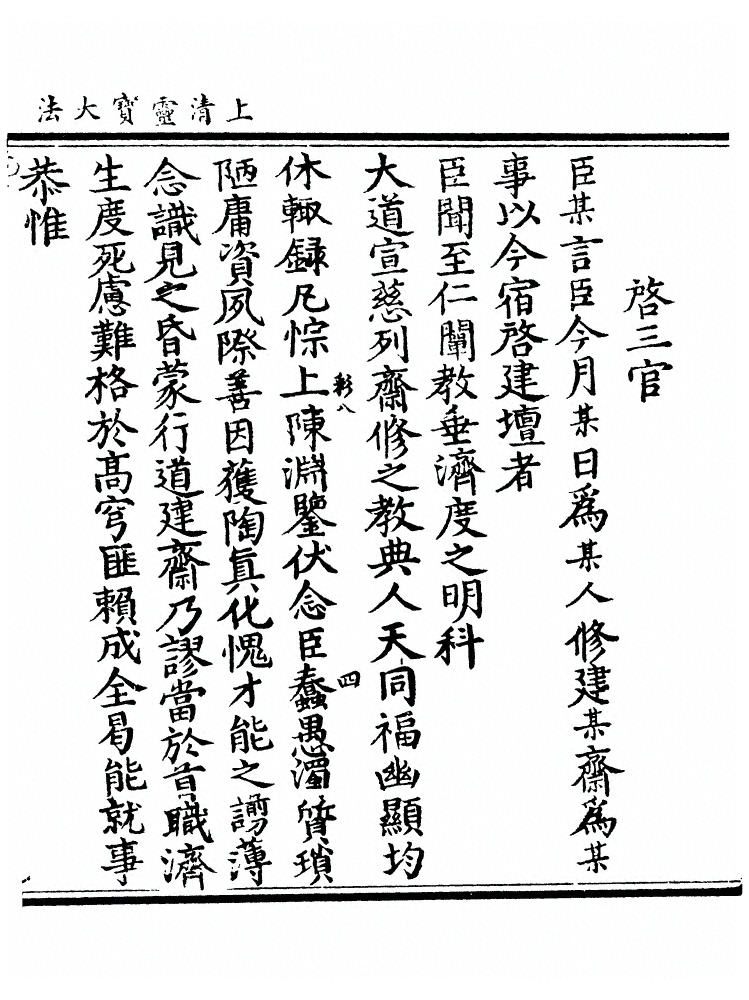 上清靈寶大法
啓三官
臣某言臣今月某日爲某人修建某齋爲某
事以今宿啓建壇者
臣聞至仁闡教垂濟度之明科
大道宣慈列齋修之教典人天同福幽顯均
休輙録凡悰上陳淵鑒伏念臣蠢愚濁質瑣
彩八
四
陋庸資夙際善因獲陶真化愧才能之謭薄
念識見之昏蒙行道建齋乃謬當於首職濟
生度死慮難格於高穹匪賴成全曷能就事
恭惟